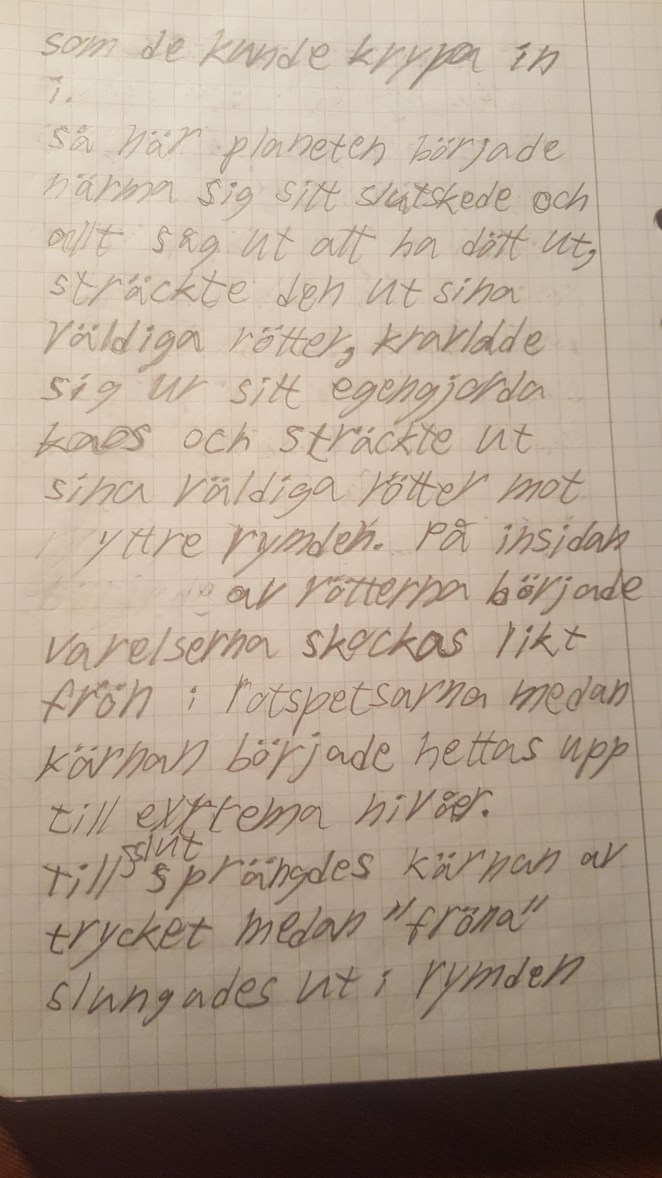 som de kunde krypa in
i.
så när planeten började
närma sig sitt slutskede och
allt såg ut att ha dött ut,
sträckte den ut sina
väldiga rötter, kravlade
sig ur sitt egengjorda
kaos och sträckte ut
sina väldiga rötter mot
yttre rymden. På insidan
av rötterna började
varelserna skockas likt
frön i rotspetsarna medan
kärnan började hettas upp
till extrema nivåer.
till slut sprängdes kärnan av
trycket medan "fröna"
slungades ut i rymden